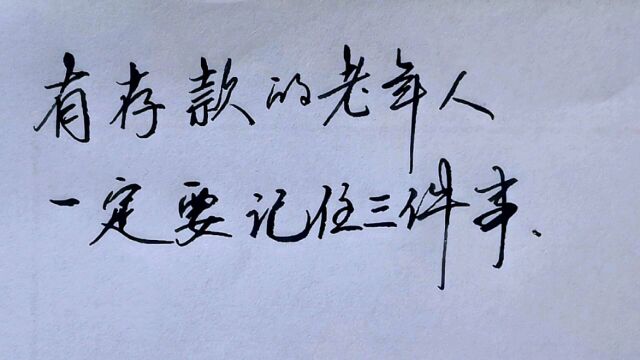 有存款的老年人
一定要记住三件事、